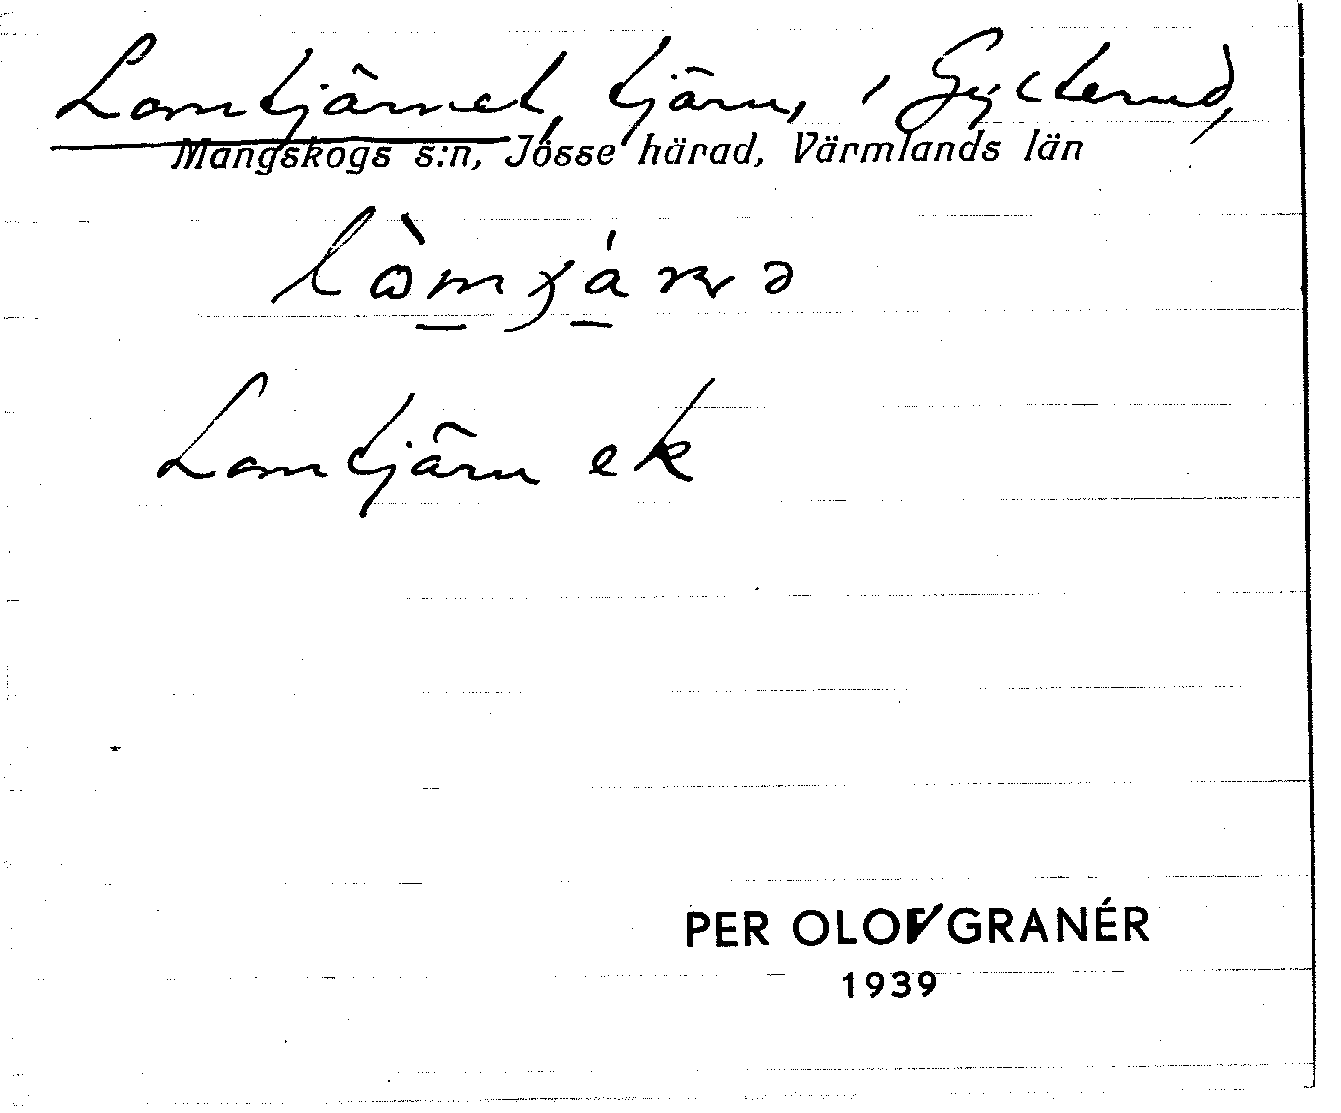 Lomtjärnet, tjärn, i Gylterud,
Mangskogs s:n, Jösse härad, Värmlands län
Lomtjärn ek
PER OLOV GRANÉR
1939